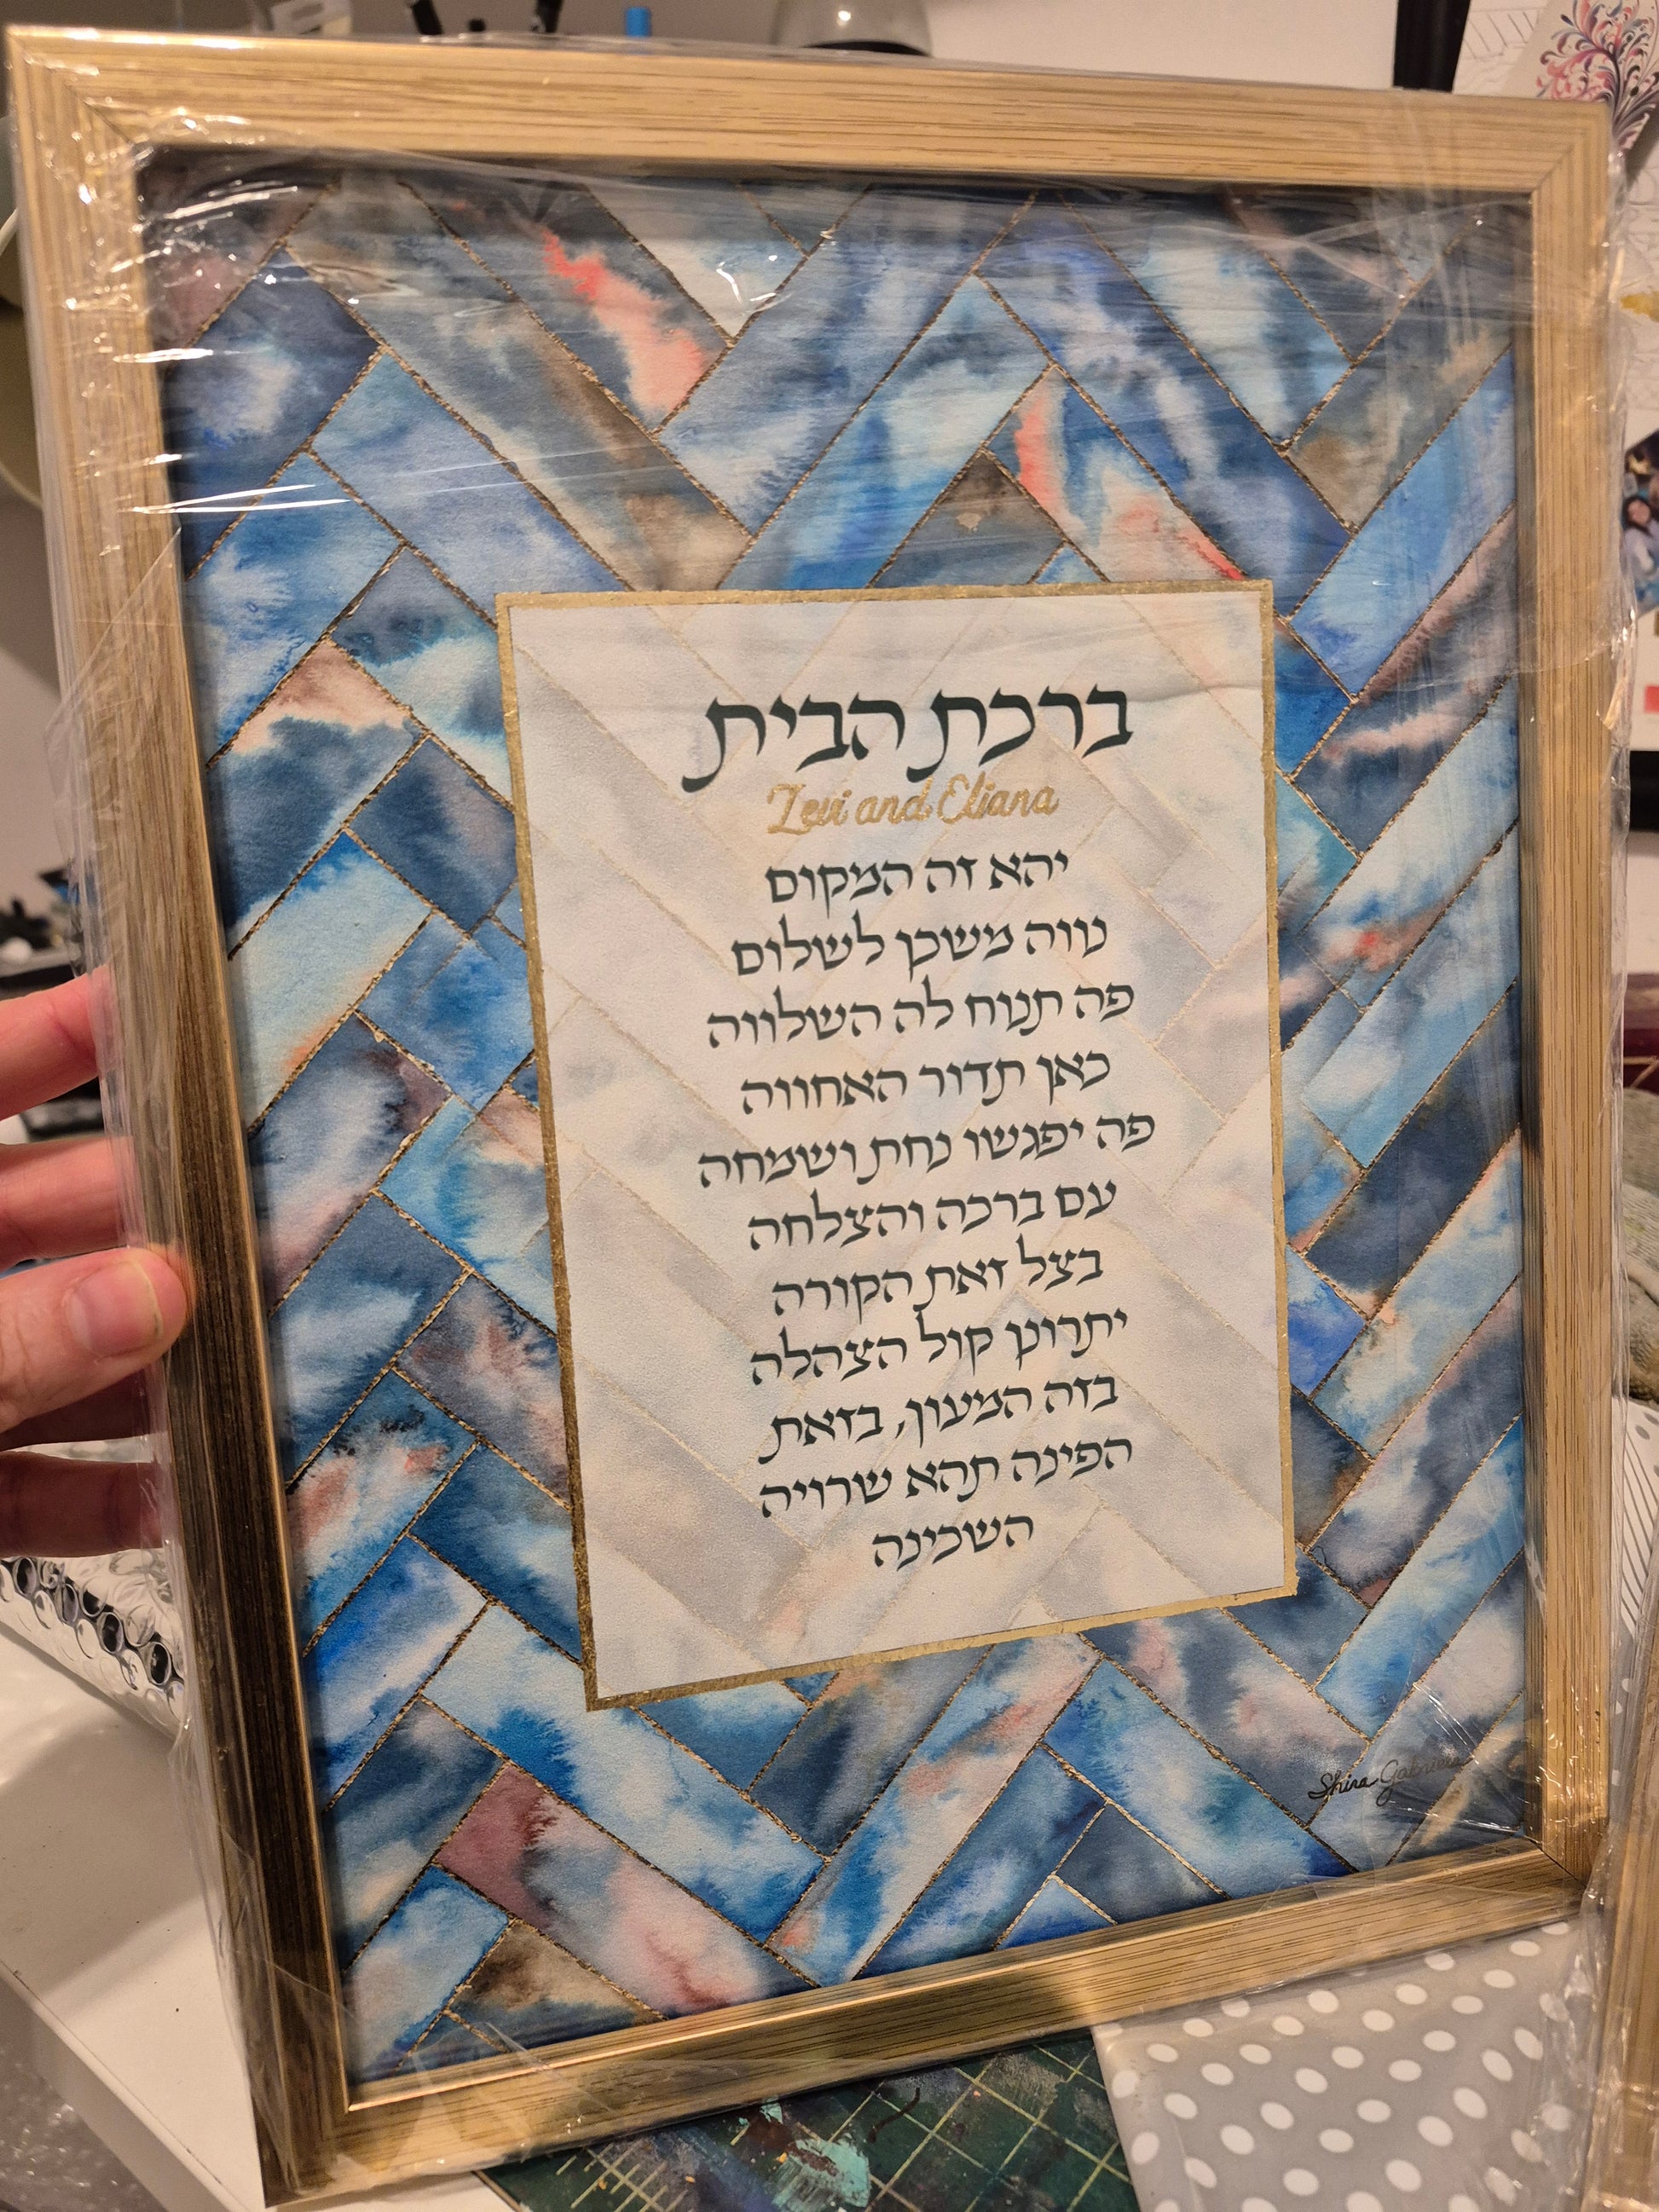 ברכת הבית
Levi and Eliana
יהא זה המקום
נווה משכן לשלום
פה תנוח לה השלווה
כאן תדור האחווה
פה יפגשו נחת ושמחה
עם ברכה והצלחה
בצל זאת הקורה
יתרונן קול הצהלה
בזה המעון, בזאת
הפינה תהא שרויה
השכינה
Shira